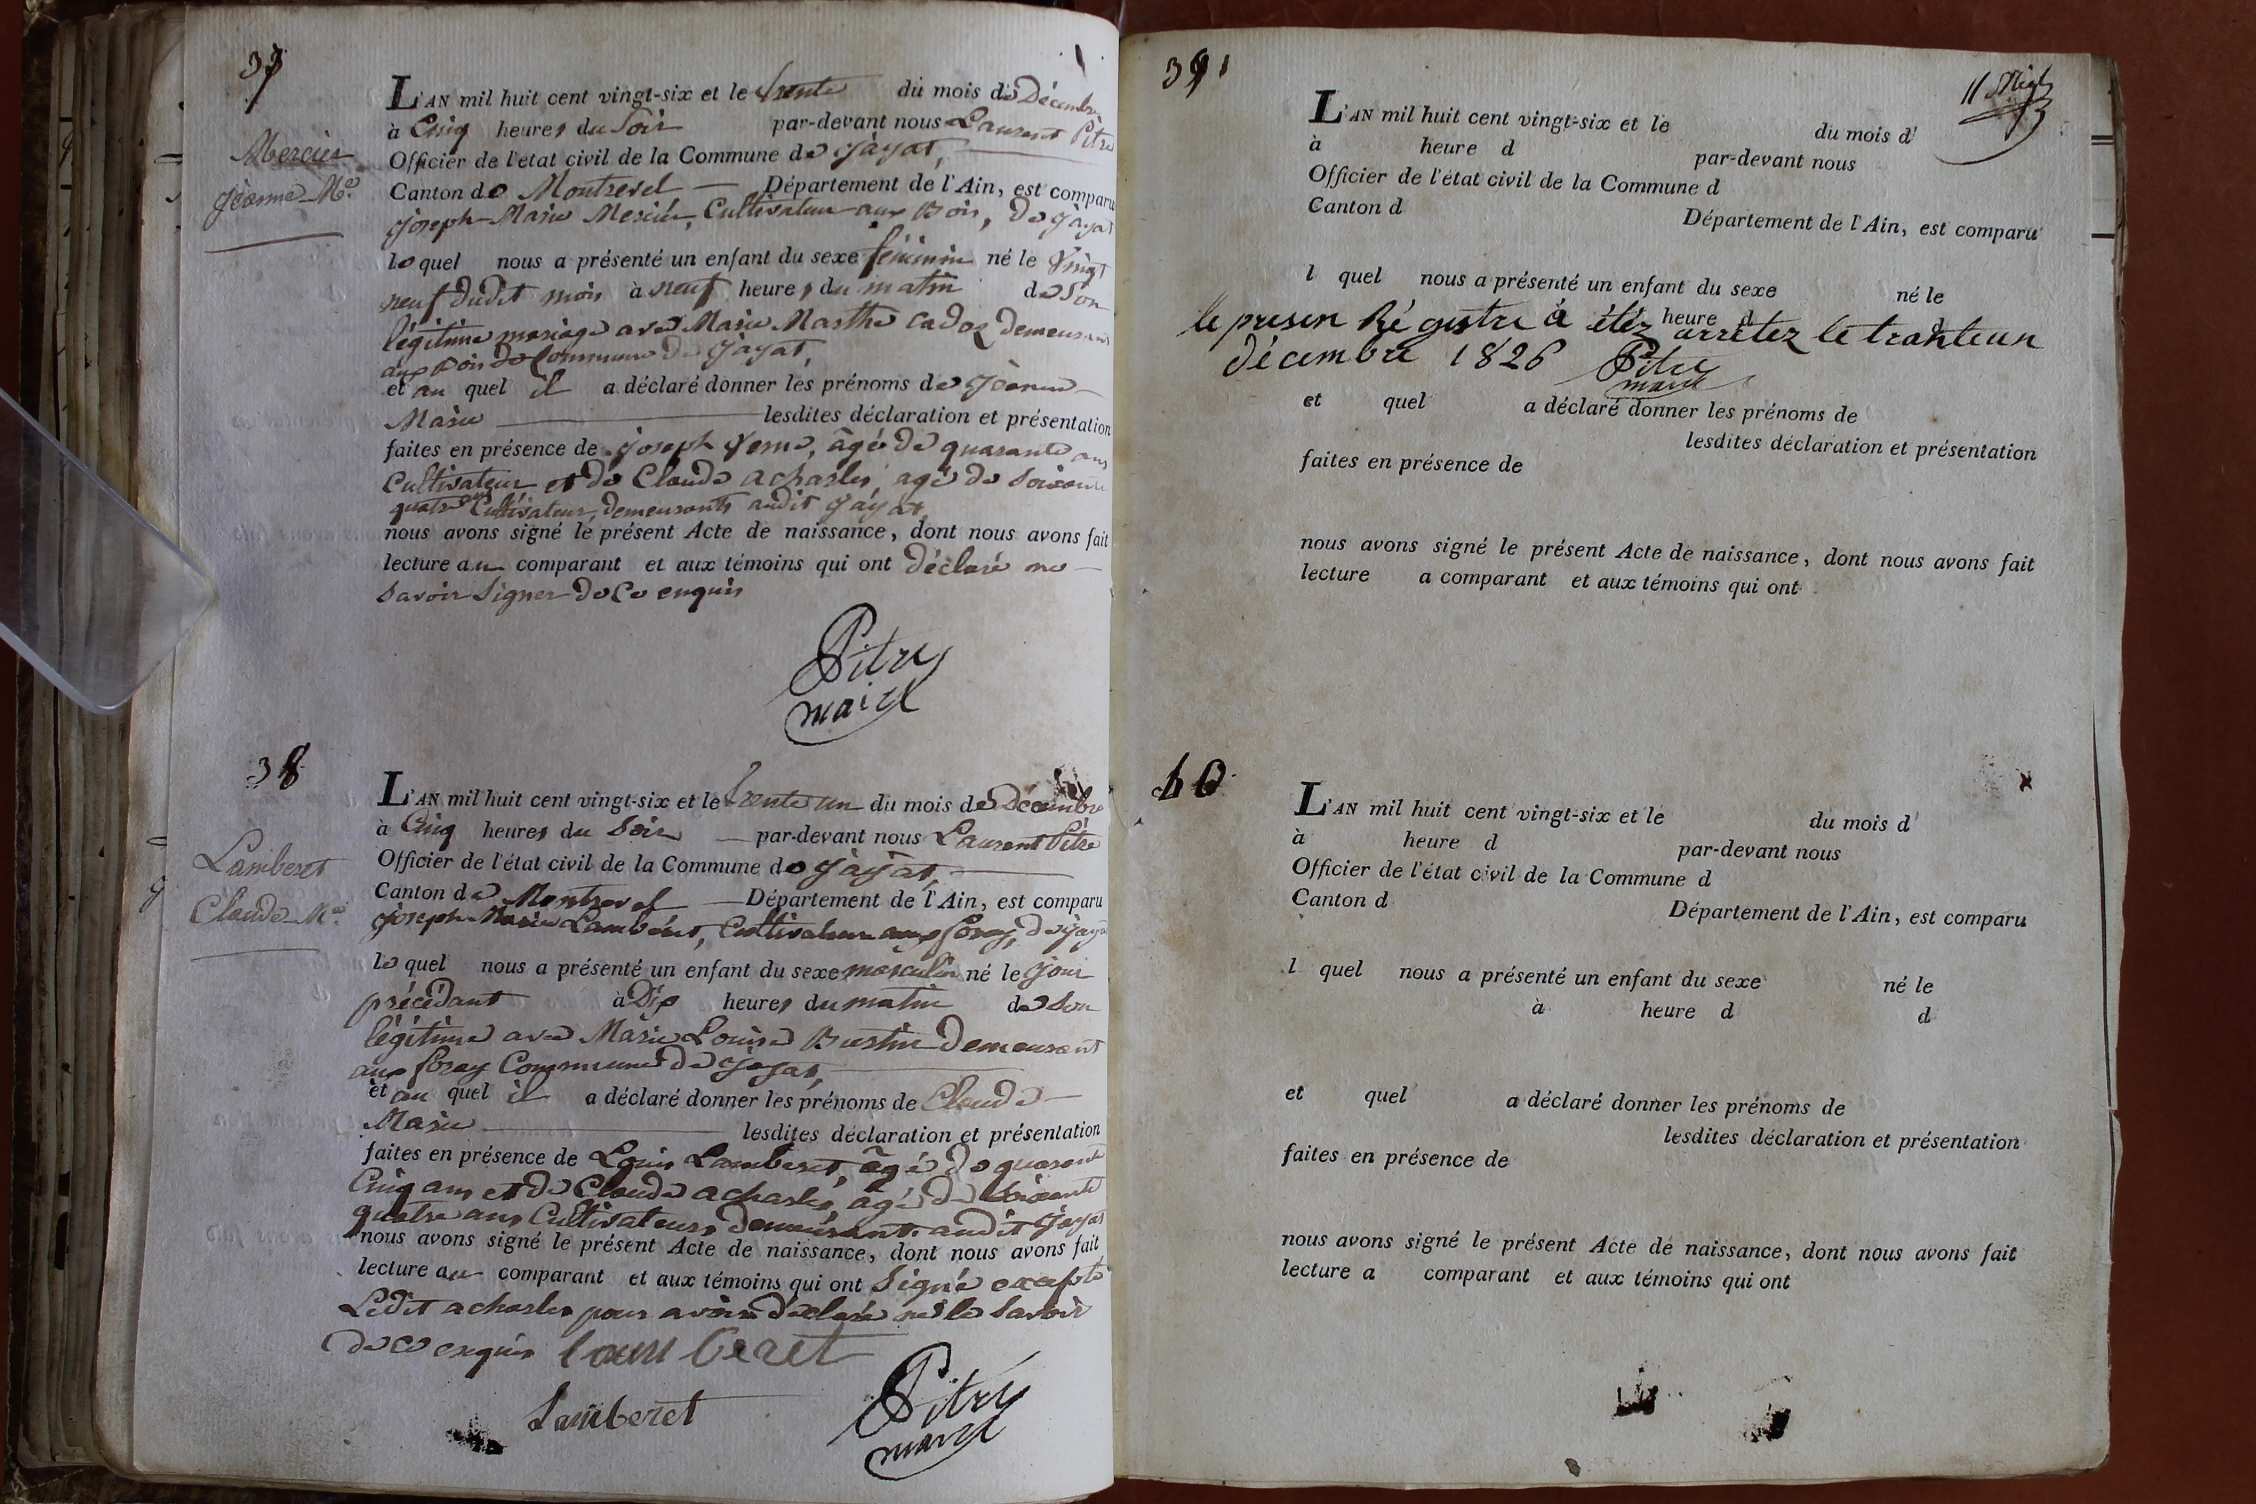 37
Mercier
Jeanne Mie
L'AN mil huit cent vingt-six et le trente du mois de Décembre
à Cinq heures du Soir par-devant nous Laurent Pitre
Officier de l'état civil de la Commune de Jayat,
Canton de Montrevel — Département de l'Ain, est comparu
Joseph Marie Mercier, Cultivateur aux Bois, de Jayat
lequel nous a présenté un enfant du sexe féminin né le Vingt
neuf dudit mois à neuf heures du matin de Son
légitime mariage avec Marie Marthe Cadoz demeurant
aux Bois de Commune de Jayat,
et au quel il a déclaré donner les prénoms de Jeanne
Marie lesdites déclaration et présentation
faites en présence de Joseph Verne, âgé de quarante ans
Cultivateur et de Claude acharles, agé de Soixante
quatre ans Cultivateur, demeurants audit Jayat,
nous avons signé le présent Acte de naissance, dont nous avons fait
lecture au comparant et aux témoins qui ont déclaré ne
Savoir Signer de Ce enquis
Pitre
maire
38
Lamberet
Claude Mie
L'AN mil huit cent vingt-six et le trente un du mois de Décembre
à Cinq heures du Soir — par-devant nous Laurent Pitre
Officier de l'état civil de la Commune de Jayat,
Canton de Montrevel — Département de l'Ain, est comparu
Joseph Marie Lambéret, Cultivateur aux foray, de Jayat
lequel nous a présenté un enfant du sexe masculin né le Jour
précédant à Dix heures du matin de Son
légitime avec Marie Louise Burtin demeurant
aux foray Commune de Jayat,
et au quel il a déclaré donner les prénoms de Claude
Marie lesdites déclaration et présentation
faites en présence de Louis Lamberet, âgé de quarante
Cinq ans et de Claude acharles, âgé de Soixante
quatre ans Cultivateurs demeurant audit Jayat
nous avons signé le présent Acte de naissance, dont nous avons fait
lecture au comparant et aux témoins qui ont Signé excepté
Ledit acharles pour avoir déclaré ne le Savoir
de ce enquis lamberet
Lamberet
Pitre
maire
39
L'AN mil huit cent vingt-six et le du mois d
à heure d par-devant nous
Officier de l'état civil de la Commune d
Canton d Département de l'Ain, est comparu
l quel nous a présenté un enfant du sexe né le
heure d d
le presen Régistre à étéz arrètez le tranteun
décembre 1826 Pitre
maire
et quel a déclaré donner les prénoms de
lesdites déclaration et présentation
faites en présence de
nous avons signé le présent Acte de naissance, dont nous avons fait
lecture a comparant et aux témoins qui ont
40
L'AN mil huit cent vingt-six et le du mois d
à heure d par-devant nous
Officier de l'état civil de la Commune d
Canton d Département de l'Ain, est comparu
l quel nous a présenté un enfant du sexe né le
à heure d d
et quel a déclaré donner les prénoms de
lesdites déclaration et présentation
faites en présence de
nous avons signé le présent Acte de naissance, dont nous avons fait
lecture a comparant et aux témoins qui ont